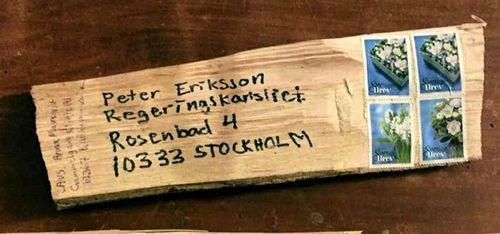 Peter Eriksson
Regeringskansliet
Rosenbad 4
10333 STOCKHOLM
Sverige
Brev
Sverige
Brev
Sverige
Brev
Sverige
Brev
Avs. Anna